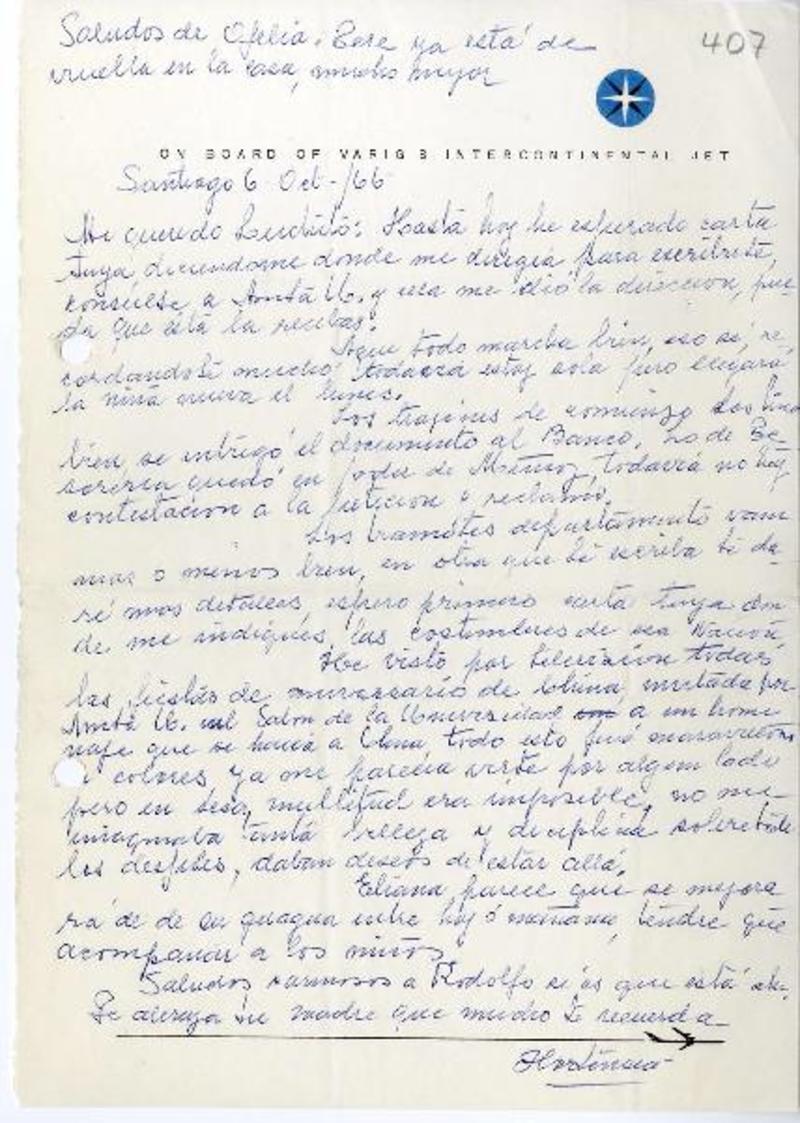 Saludos de Ofelia. Tere ya está de
vuelta en la casa, mucho mejor
407
ON BOARD OF VARIG'S INTERCONTINENTAL JET
Santiago 6 Oct-/66
Mi querido Luchito: Hasta hoy he esperado carta
tuya diciendome donde me dirigia para escribirte,
consulté a Anita U. y ella me dió la dirección,
que esta la recibas.
Aqui todo marcha bien, eso si, re-
cordandote mucho, todavia estoy sola pero llegará
la niña nueva el lunes.
Los de comienzo
bien, se entregó el documento al Banco, lo de Te-
soreria quedó en poder de Muñoz, todavia no hay
contestación a la petición o reclamo.
Los tramites departamento van
mas o menos bien, en otra que te escriba te da-
ré mas detalles, espero primero carta tuya don
de me indiques, las costumbres de esa Nación
He visto por television todas
las fiestas de aniversario de China, invitada por
Anita U. al Salon de la Universidad a un home
naje que se hacia a China, todo esto fué
colores ya me parecia verte por algun lado
pero en esa multitud era imposible, no me
imaginaba tanta belleza y disciplina sobretodo
los desfiles, daban deseos de estar allá.
Eliana parece que se mejora
rá de de su guagua entre hoy o mañana, tendre que
acompañar a los niños.
Saludos cariñosos a Rodolfo si es que está
Te abraza tu madre que mucho te recuerda
Hortensia